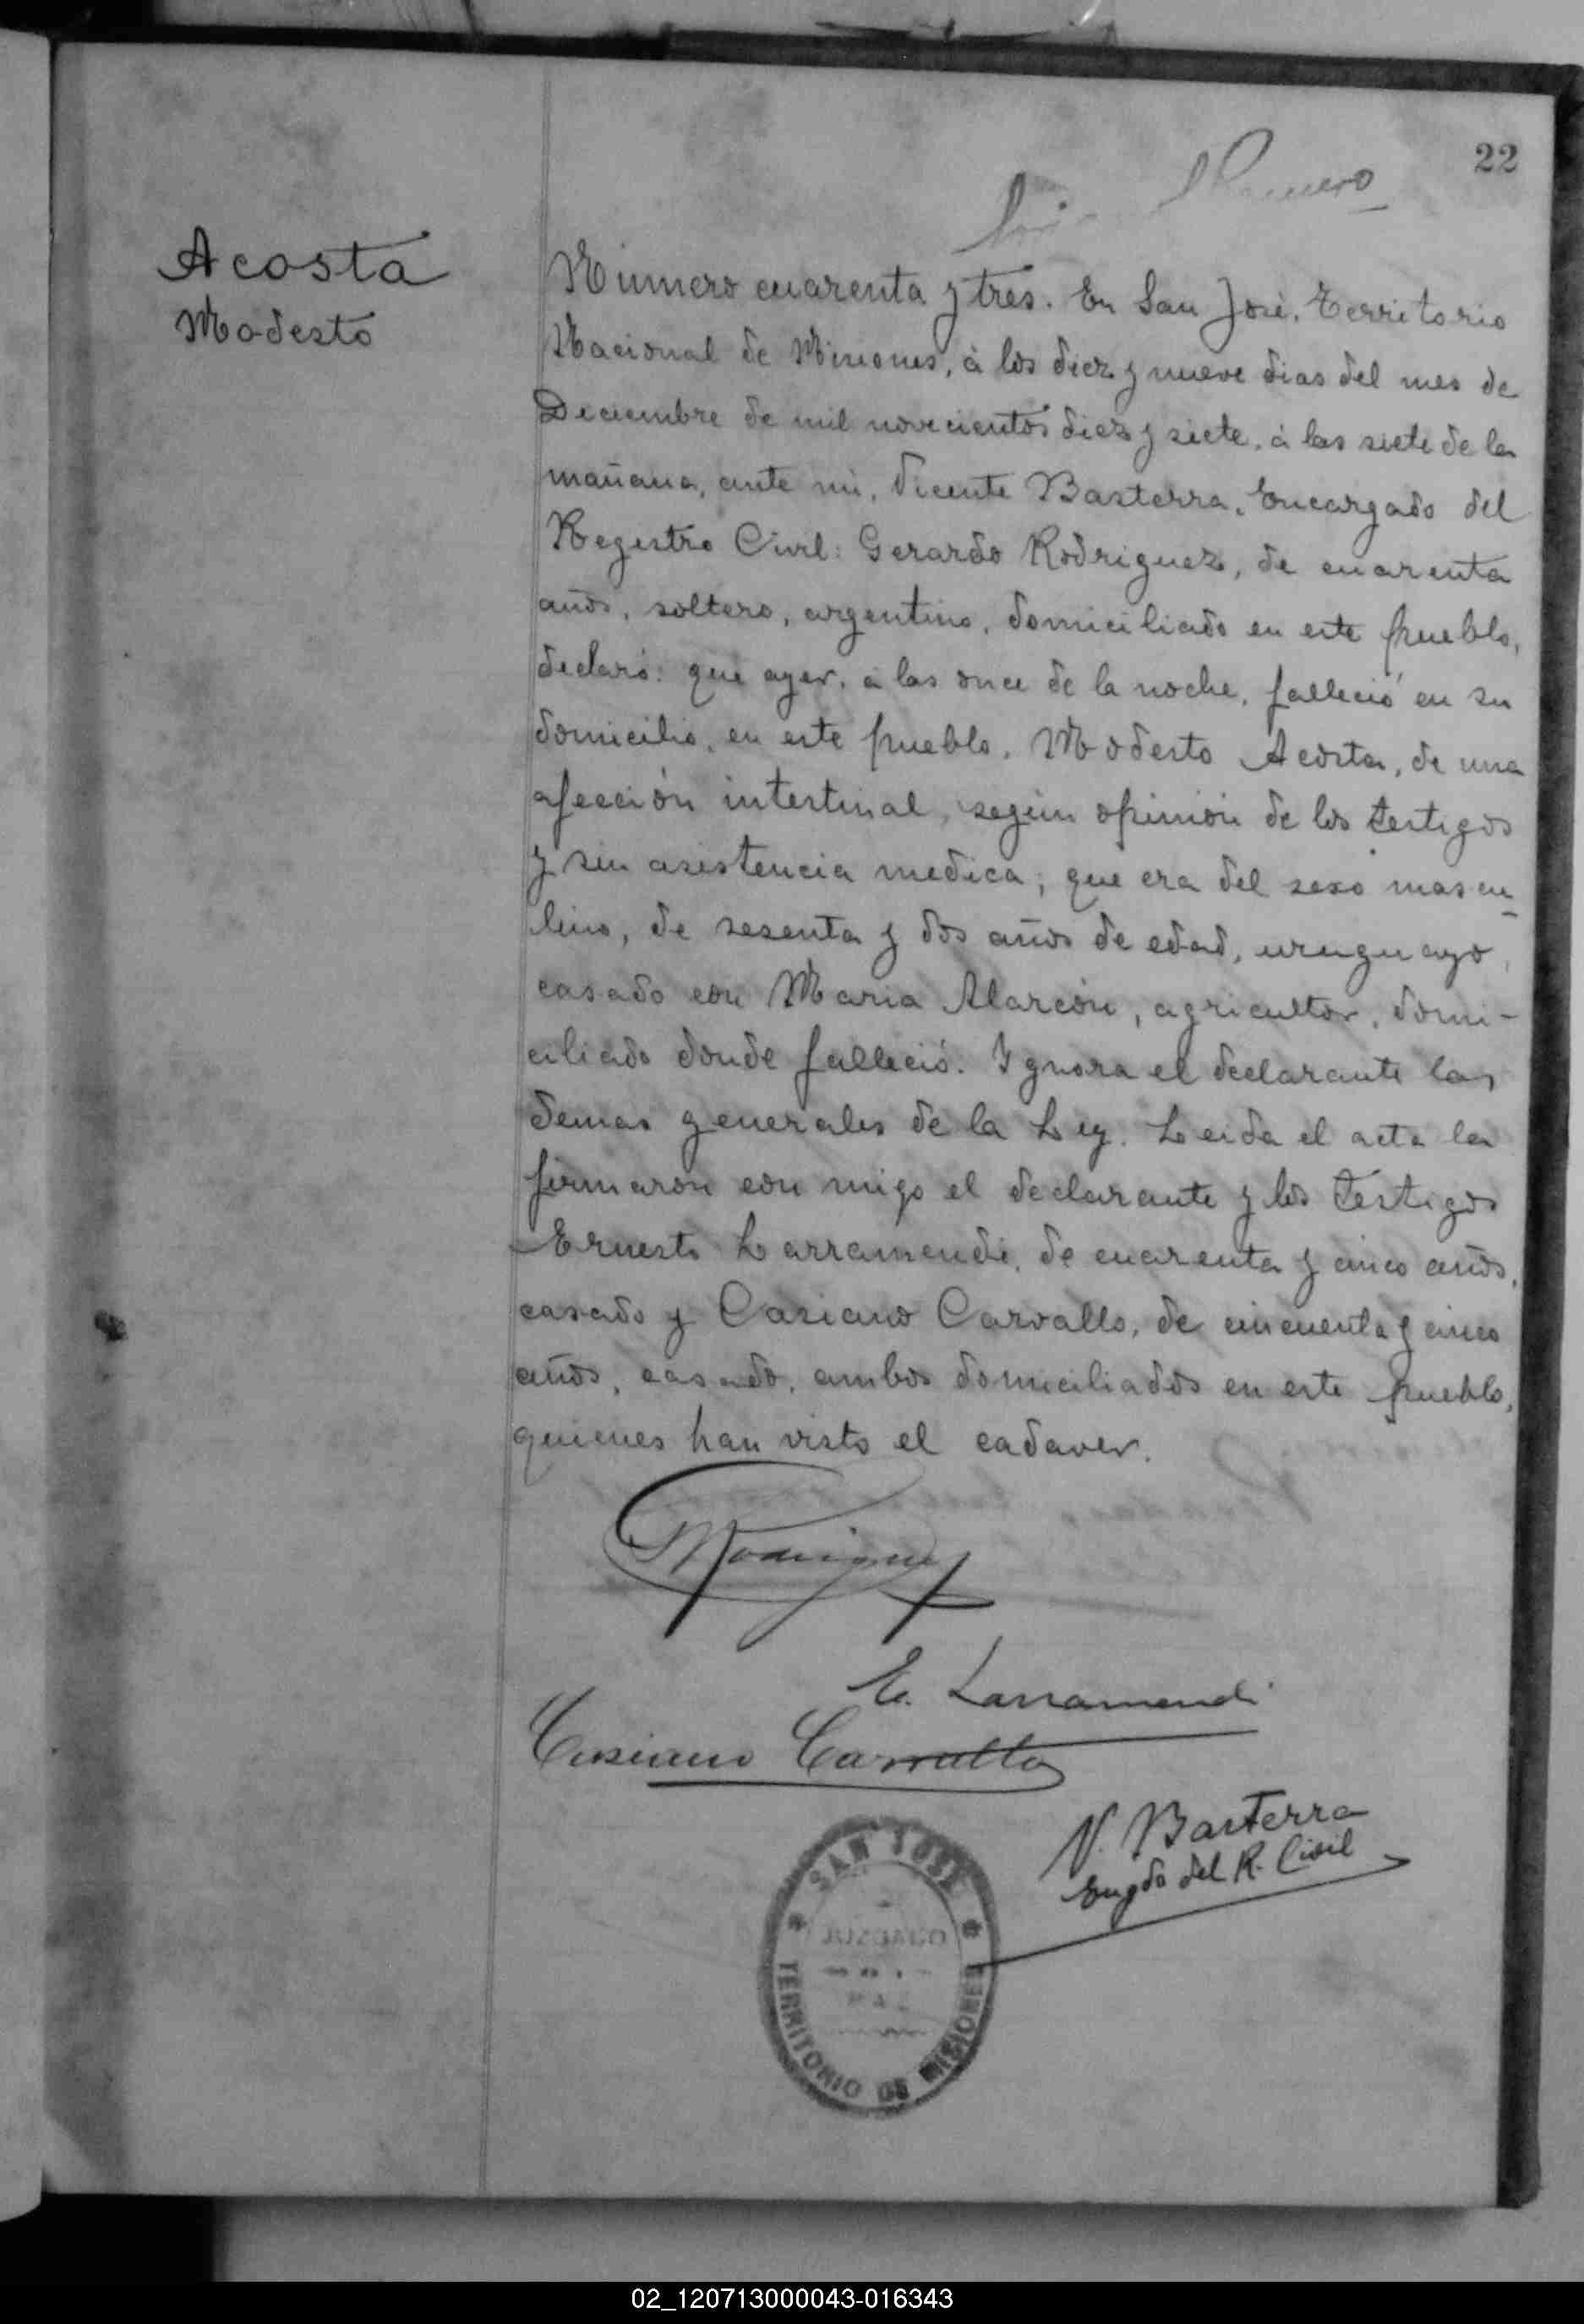 22
Romero
Acosta
Modesto
Número cuarenta y tres. En San José, Territorio
Nacional de Misiones, à los diez y nueve dias del mes de
Deciembre de mil novecientos diez y siete, à las siete de la
mañana, ante mi, Vicente Basterra, Encargado del
Registro Civil: Gerardo Rodriguez, de cuarenta
años, soltero, argentino, domiciliado en este pueblo,
declaró: que ayer, à las once de la noche, falleció en su
domicilio, en este pueblo, Modesto Acosta, de una
afección intestinal, según opinión de los testigos
y sin asistencia medica; que era del sexo mascu
lino, de sesenta y dos años de edad, uruguayo,
casado con Maria Alarcón, agricultor, domi-
ciliado donde falleció. Ygnora el declarante las
demas generales de la Ley. Leida el acta la
firmaron con migo el declarante y los testigos
Ernesto Larramendi, de cuarenta y cinco años,
casado y Casiano Carvallo, de cincuenta y cinco
años, casado, ambos domiciliados en este pueblo,
quienes han visto el cadaver.
Rodriguez
E. Larramendi
Casiano Carvallo
V. Basterra
Engdo del R. Civil
SAN JOSE
JUZGADO
DE
PAZ
TERRITORIO DE MISIONES
02_120713000043-016343